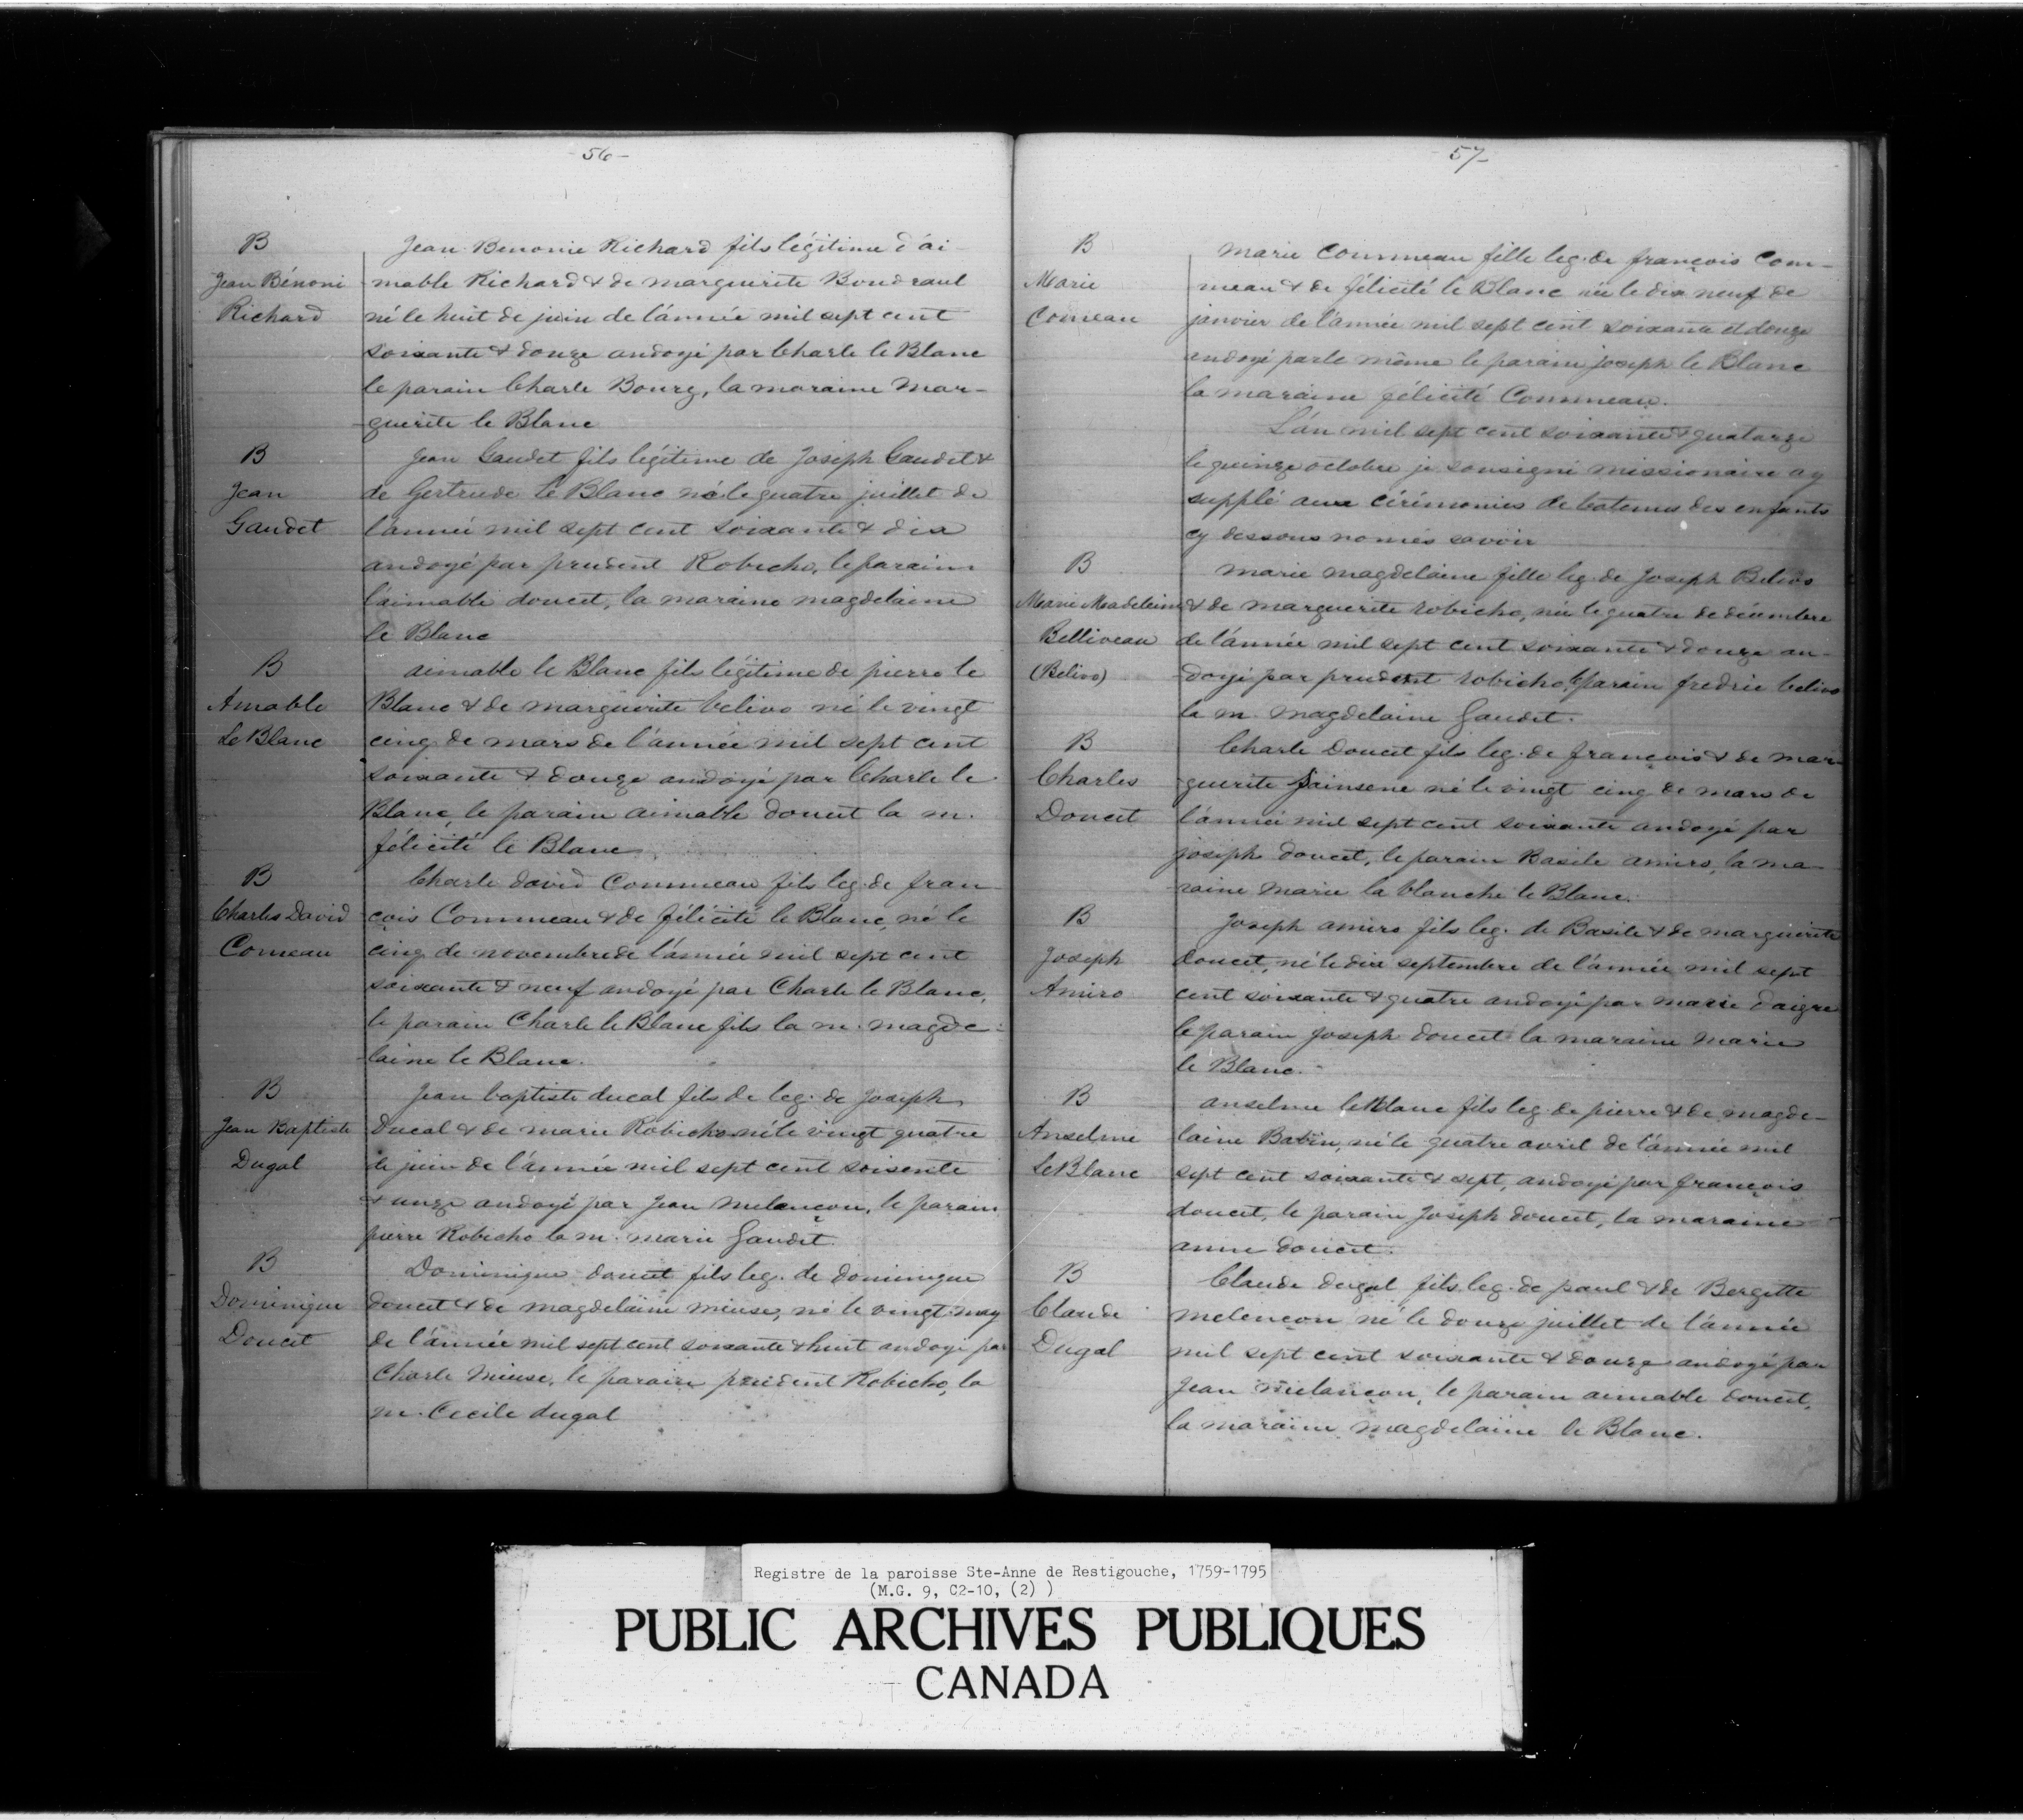 -56-
B
Jean Bénoni
Richard
Jean Benonie Richard fils légitime d'ai
mable Richard & de marguerite Boudraul
né le huit de juin de l'année mil sept cent
soixante & douze andoyé par Charle le Blanc
le parain Charle Bourg, la maraine Mar-
guerite le Blanc
B
Jean
Gaudet
Jean Gaudet fils légitime de Joseph Gaudet &
de Gertrude le Blanc né le quatre juillet de
l'année mil sept cent soixante & dix
andoyé par prudent Robicho, le parain
l'aimable doucet, la maraine magdelaine
le Blanc
B
Amable
LeBlanc
aimable le Blanc fils légitime de pierre le
Blanc & de marguerite belivo né le vingt
cinq de mars de l'année mil sept cent
soixante & douze andoyé par Charle le
Blanc, le parain aimable doucet la m.
félicité le Blanc
B
Charles David
Comeau
Charle david Commeau fils leg. de fran
cois Commeau & de félicité le Blanc, né le
cinq de novembre de l'année mil sept cent
soixante & neuf andoyé par Charle le Blanc,
le parain Charle le Blanc fils la m. magde-
laine le Blanc.
B
Jean Baptiste
Dugal
Jean baptiste ducal fils de leg. de Joseph
Ducal & de marie Robicho né le vingt quatre
de juin de l'année mil sept cent soisente
& unze andoyé par Jean melançon, le parain
pierre Robicho la m. marie Gaudet.
B
Dominique
Doucet
Dominique doucet fils leg. de dominique
doucet & de magdelaine mieuse, né le vingt may
de l'année mil sept cent soixante & huit andoyé par
Charle Mieuse, le parain prudent Robicho, la
m. Cecile dugal
57-
B
Marie
Comeau
marie Commeau fille leg. de françois Com-
meau & de félicité le Blanc née le dix neuf de
janvier de l'année mil sept cent soixante et douze
endoyé par le même le parain joseph le Blanc
la maraine félicité Commeau.
L'an mil sept cent soixante & quatorze
le quinze octobre je sousigné missionaire ay
supplé aux cérémonies de batemes des enfants
cy dessous només savoir
B
Marie Madeleine
Belliveau
(Belivo)
marie magdelaine fille leg. de Joseph Belivo
& de marguerite robicho, née le quatre de décembre
de l'année mil sept cent soixante & douze an-
doyé par prudent robicho, le parain fredric belivo
la m. magdelaine Gaudet.
B
Charles
Doucet
Charle Doucet fils leg. de françois & de mar-
guerite Jainsene né le vingt cinq de mars de
l'année mil sept cent soixante andoyé par
joseph doucet, le parain Basile amiro, la ma-
raine marie la blanche le Blanc.
B
Joseph
Amiro
Joseph amiro fils leg. de Basile & de marguerite
doucet, né le dix septembre de l'année mil sept
cent soixante & quatre andoyé par marie daigre
le parain Joseph doucet la maraine marie
le Blanc.
B
Anselme
LeBlanc
anselme leBlanc fils leg. de pierre & de magde-
laine Babin, né le quatre avril de l'année mil
sept cent soixante & sept, andoyé par françois
doucet, le parain Joseph doucet, la maraine
anne doucet.
B
Claude
Dugal
Claude dugal fils leg. de paul & de Bergitte
melencon né le douze juillet de l'année
mil sept cent soixante & douze andoyé par
Jean melancon, le parain aimable doucet,
la maraine magdelaine le Blanc.
Registre de la paroisse Ste-Anne de Restigouche, 1759-1795
(M.G. 9, C2-10, (2) )
PUBLIC ARCHIVES PUBLIQUES
CANADA